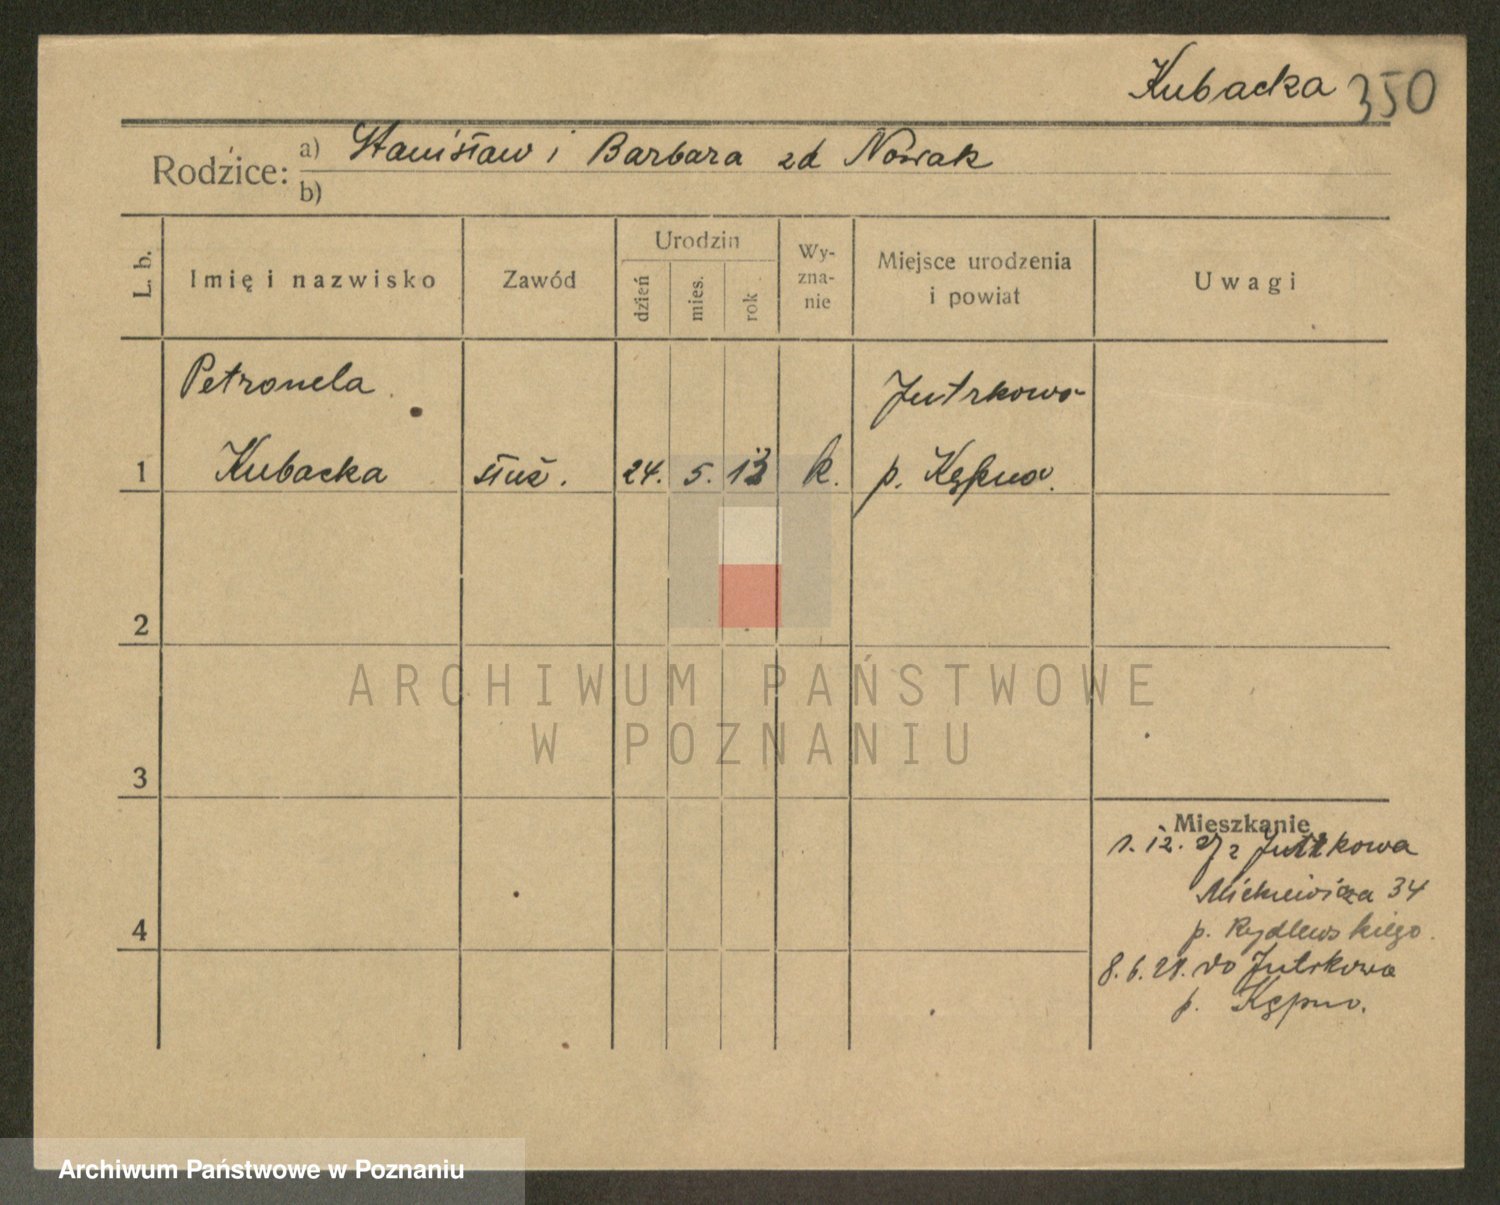 Kubacka 350
Rodzice: a) Stanisław i Barbara zd Nowak
b)
L. b.
Imię i nazwisko
Zawód
Urodzin
dzień
mies.
rok
Wy-
zna-
nie
Miejsce urodzenia
i powiat
Uwagi
Petronela
Jutrkowo
1 Kubacka służ. 24. 5. 13 k. p. Kępno.
2
ARCHIWUM PAŃSTWOWE
W POZNANIU
3
Mieszkanie
1. 12. z Jutrkowa
Mickiewicza 34
p. Rydlewskiego.
4
8. 6. do Jutrkowa
p. Kępno.
Archiwum Państwowe w Poznaniu